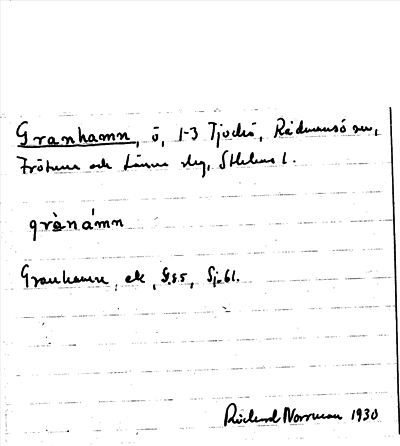 Granhamn, ö, 1-3 Tjockö, Rådmansö sn,
Frötuna och Länna skg, Sthlms l.
grànámn
Granhamn, ek, S.85, Sj.61.
Rickard Norrman 1930